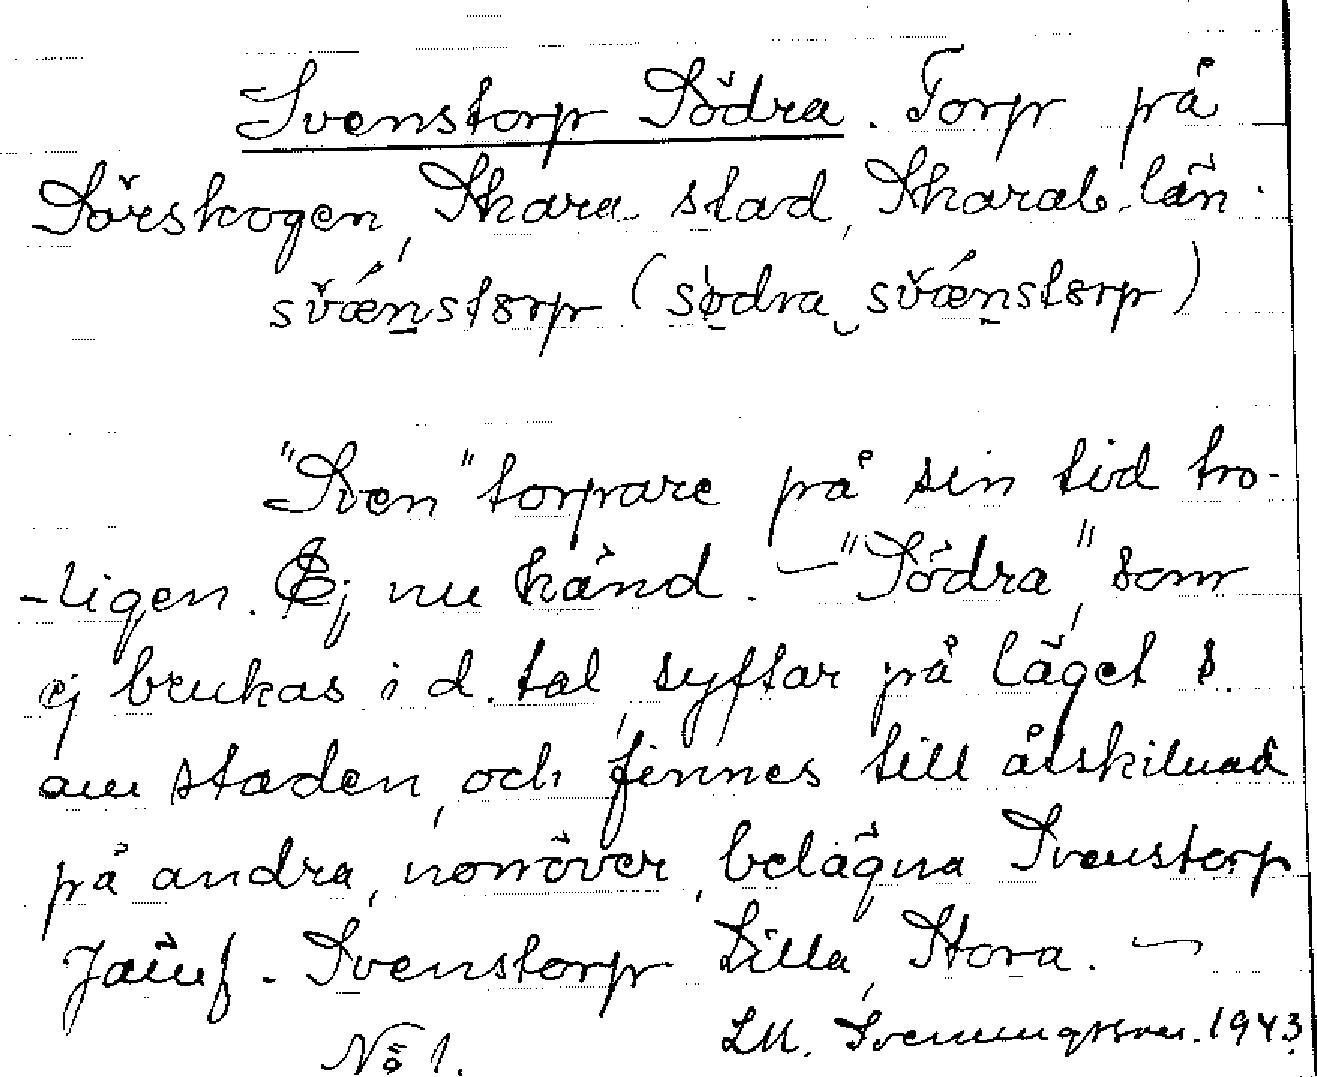 Svenstorp Södra. Torp på
Sörskogen, Skara stad, Skarab. län.
svǽnstorp (södra svǽnstorp)
"Sven" torpare på sin tid tro-
-ligen. Ej nu känd. — "Södra", som
ej brukas i d. tal, syftar på läget s.
om staden, och finnes till åtskilnad
på andra, norröver, belägna Svenstorp
Jämf. Svenstorp Lilla, Stora. —
No 1.
LM. Svenungsson. 1943.